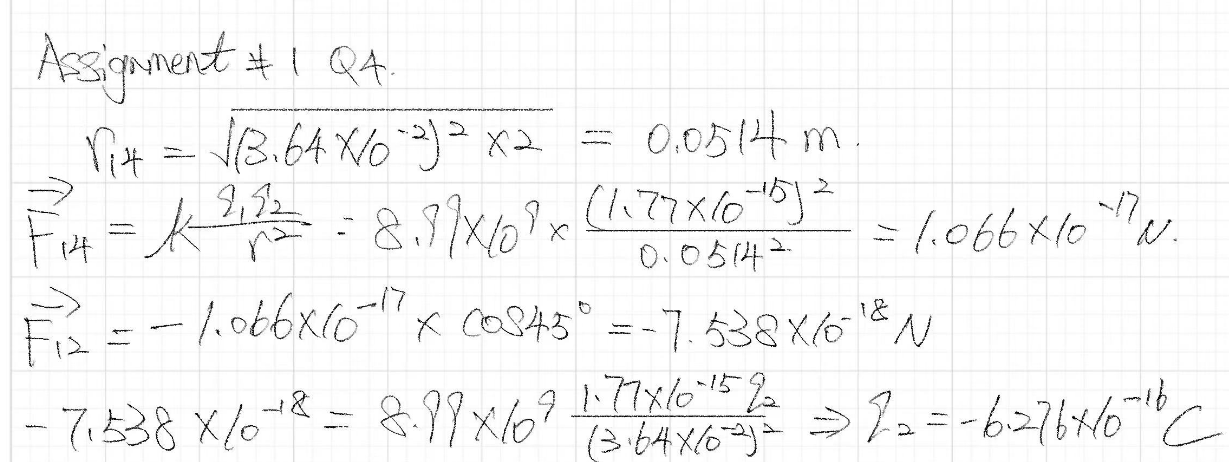 Assignment # 1 Q4.
r₁₄ = √((3.64×10⁻²)² ×2) = 0.0514 m.
F₁₄→ = k q₁q₂/r² = 8.99×10⁹ × (1.77×10⁻¹⁵)²/0.0514² = 1.066×10⁻¹⁷ N.
F₁₂→ = -1.066×10⁻¹⁷ × cos45° = -7.538×10⁻¹⁸ N
-7.538×10⁻¹⁸ = 8.99×10⁹ 1.77×10⁻¹⁵q₂/(3.64×10⁻²)² ⇒ q₂ = -6.276×10⁻¹⁶ C